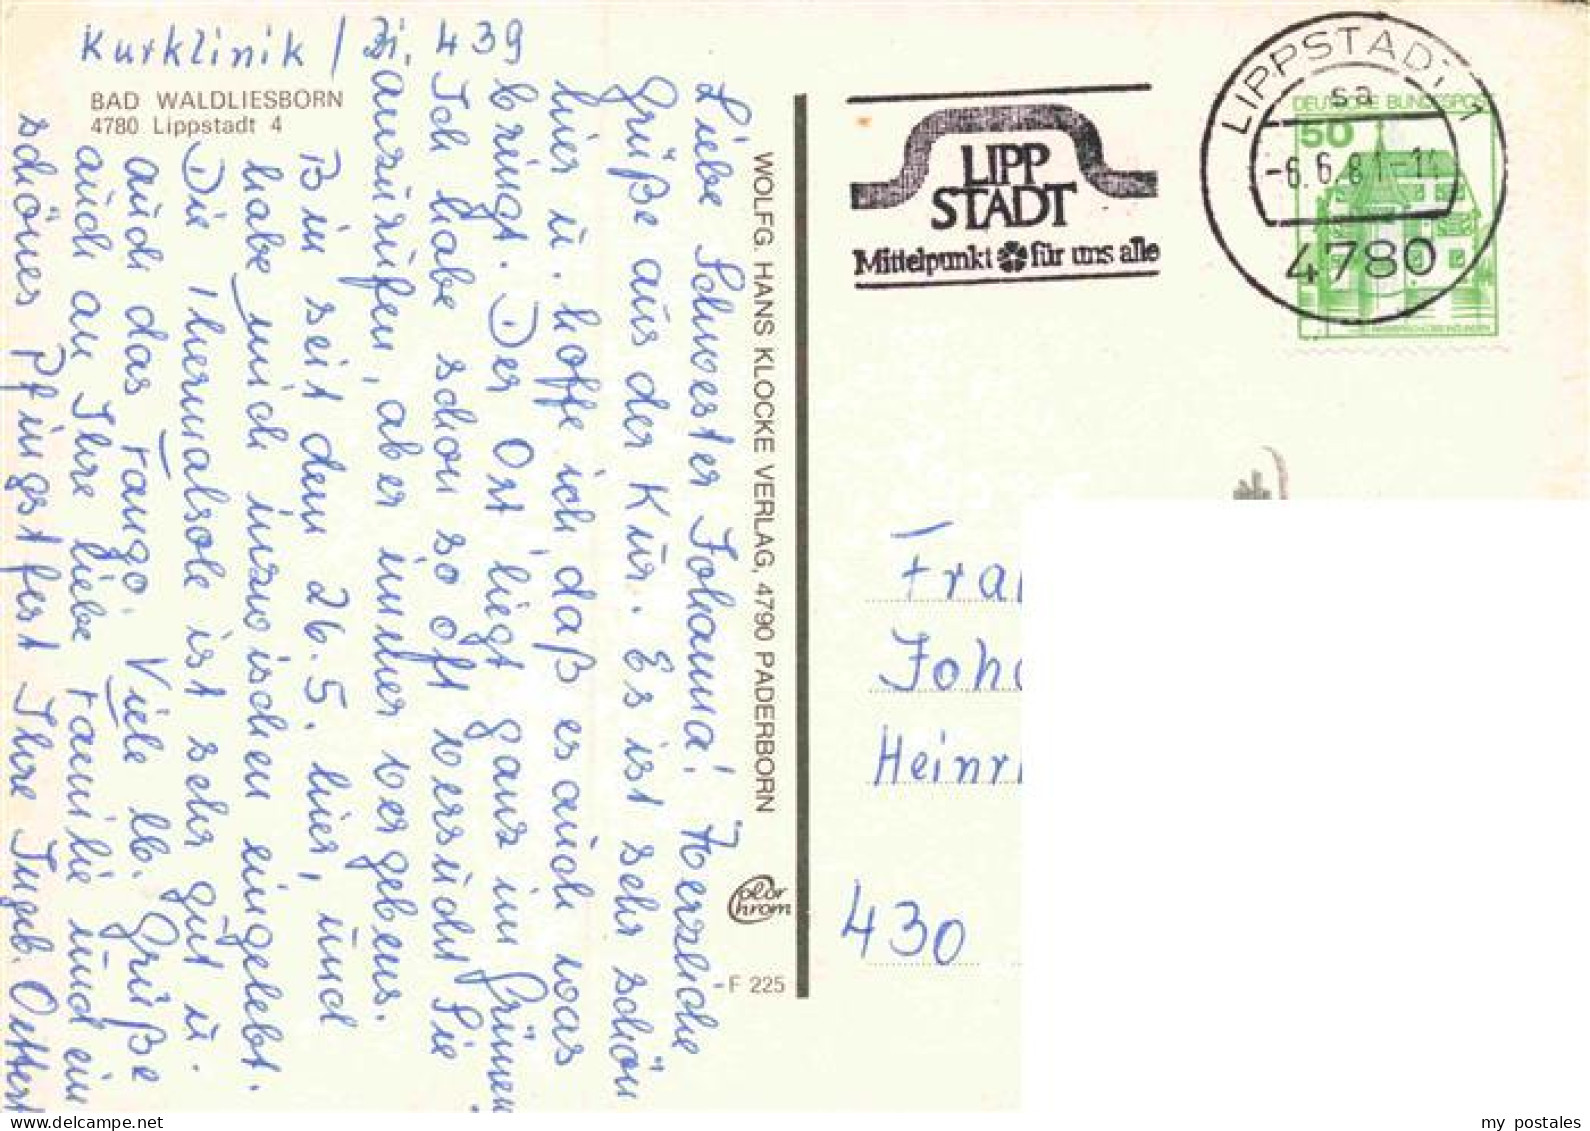 Kurklinik / Zi. 439
BAD WALDLIESBORN
4780 Lippstadt 4
Liebe Schwester Johanna! Herzliche
Grüße aus der Kur. Es ist sehr schön
hier u. hoffe ich, daß es auch was
bringt. Der Ort liegt ganz im Grünen
Ich habe schon so oft versucht Sie
anzurufen, aber immer vergebens.
Bin seit dem 26.5. hier, und
habe mich inzwischen eingelebt.
Die Thermalsole ist sehr gut u.
auch das Fango. Viele lb. Grüße
auch an Ihre liebe Familie und ein
schönes Pfingstfest Ihre Ingeb. Ottert
WOLFG. HANS KLOCKE VERLAG, 4790 PADERBORN
Color
Chrom
F 225
LIPP
STADT
Mittelpunkt für uns alle
LIPPSTADT 1
sa
-6.6.81-14
4780
DEUTSCHE BUNDESPOST
50
Frau
Joh
Heinr
430
my postales